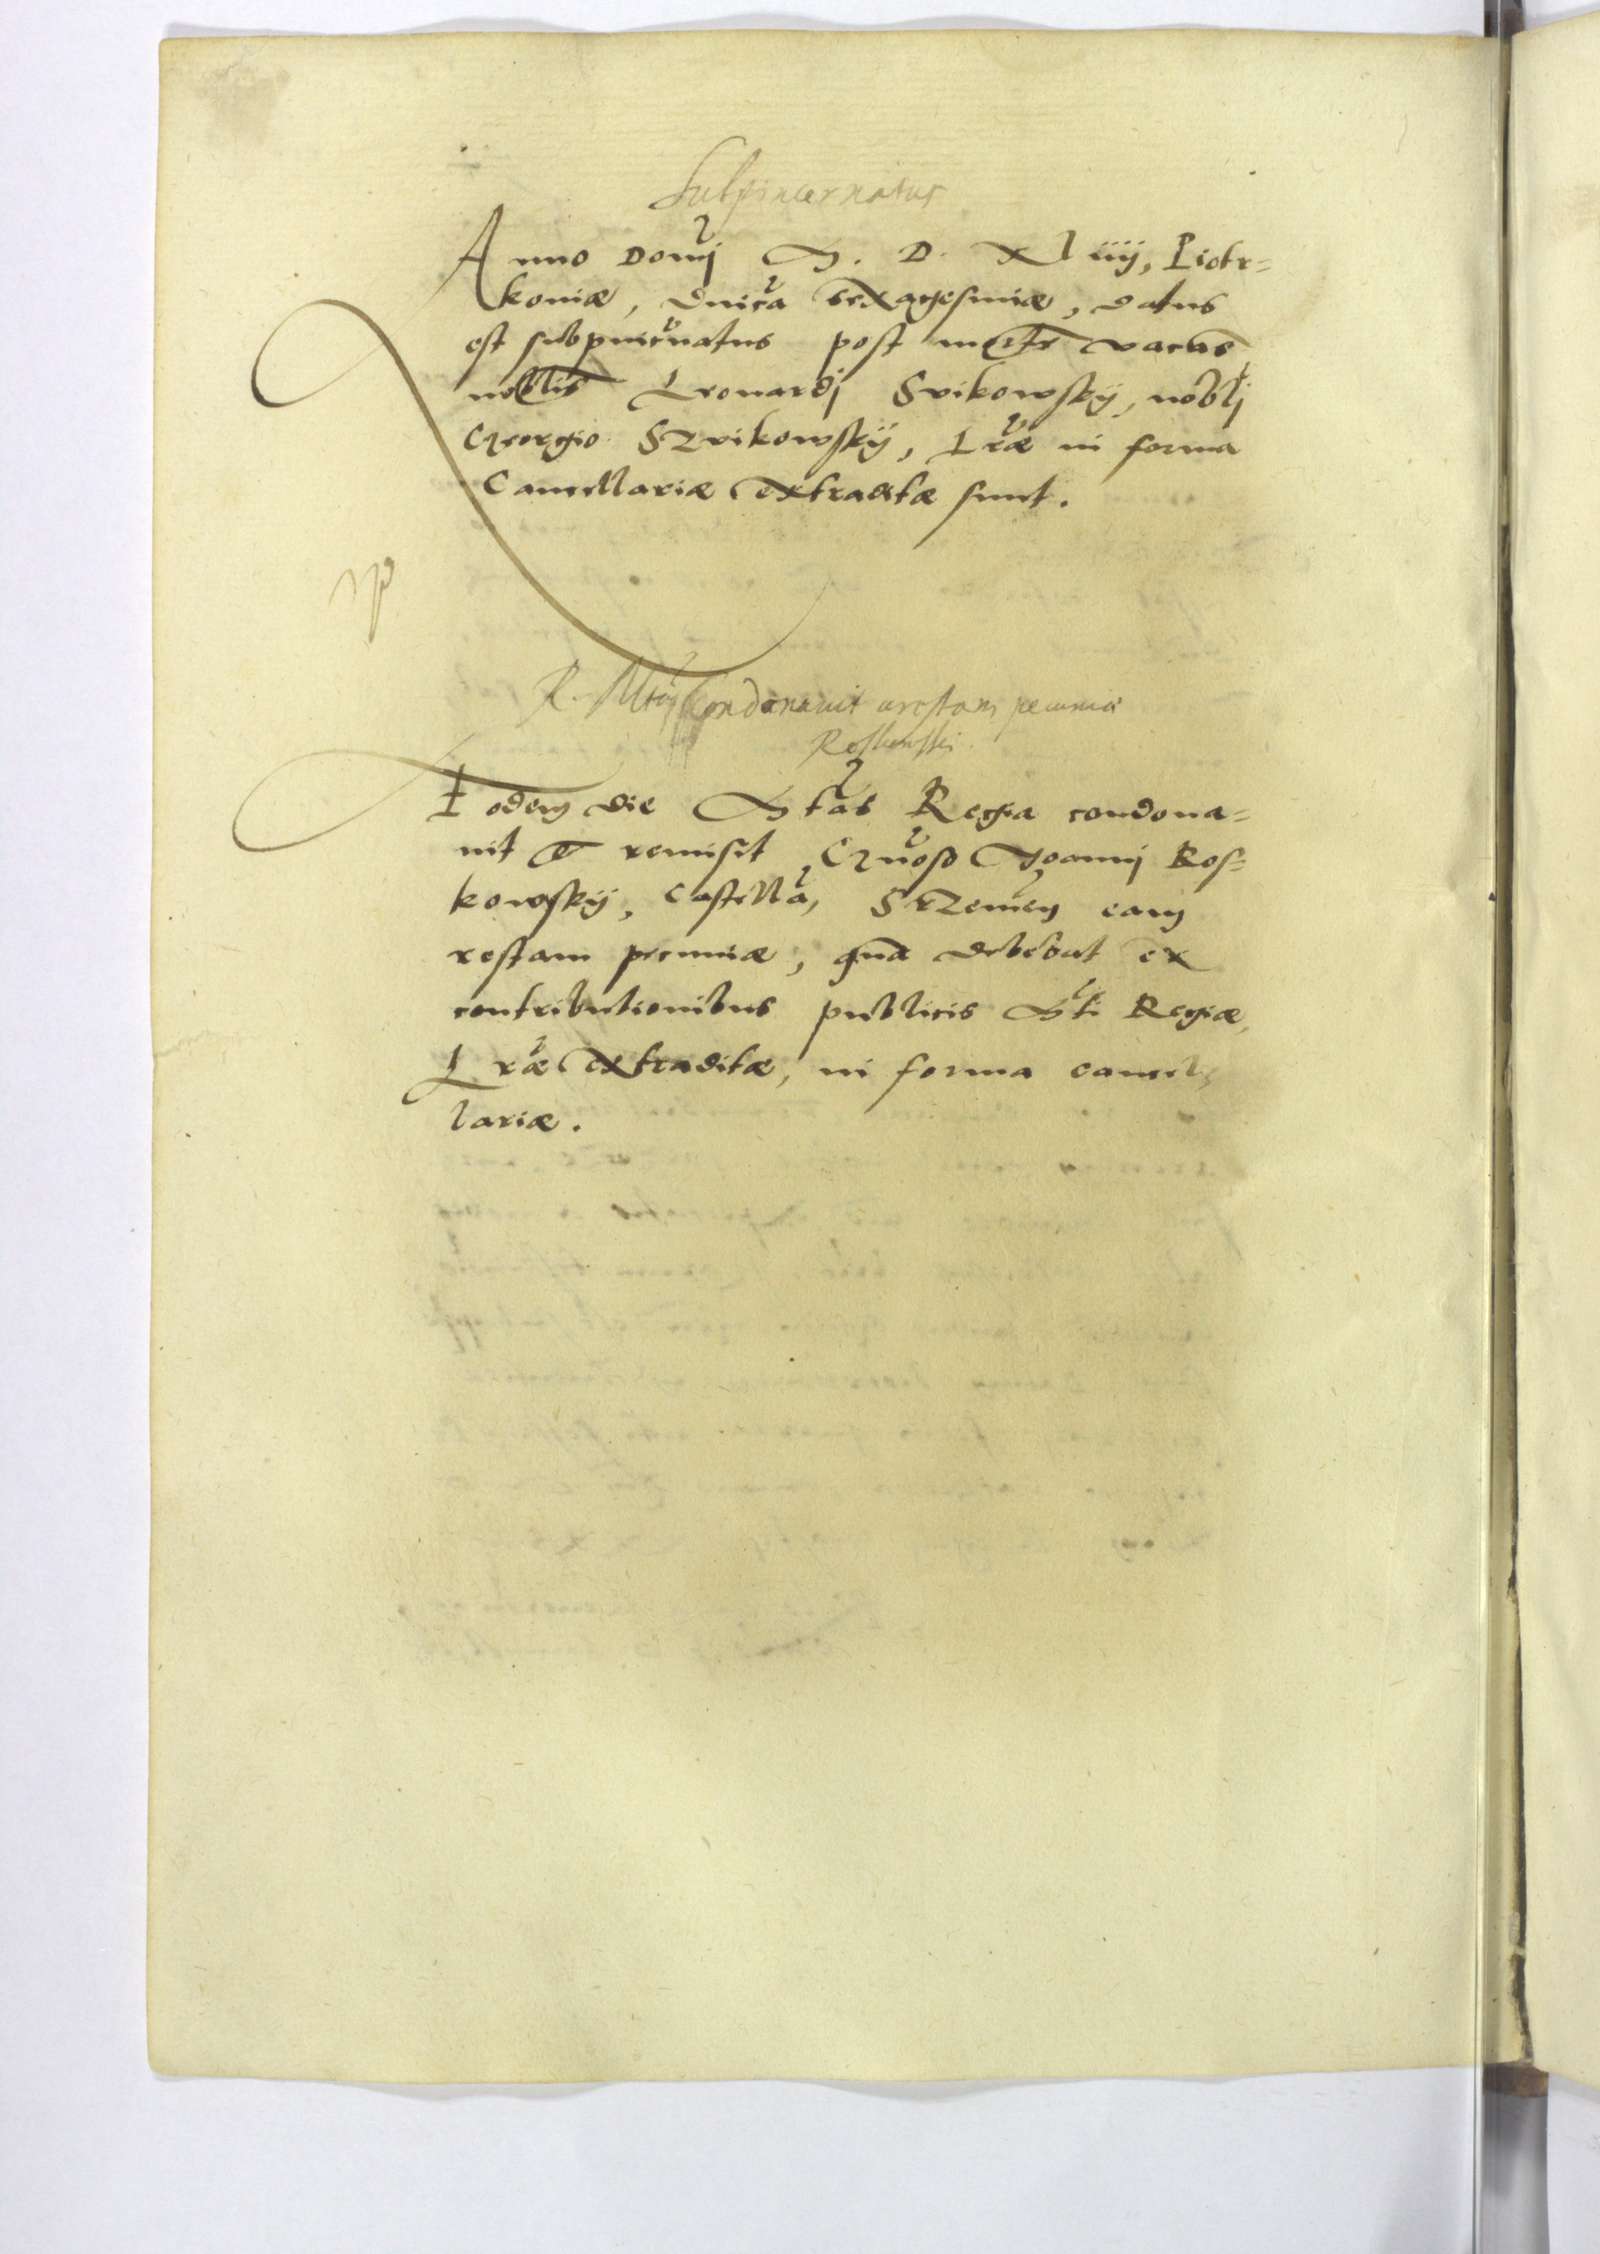 Subpincernatus
Anno Domj M. D. XLiiij, Piotr=
koviæ, Dnica sexagesimæ, datus
est subpincrnatus post mortē vacans
noblis Leonardj Srikowskÿ, noblj
Georgio Szrikowskÿ, Lræ in forma
Cancellariæ extraditæ sunt.
R. Mtas condonavit restam pecuniæ
Roskowski
Eodem die Mtas Regia condona=
uit et remisit Gnoso Joannj Ros=
kowskÿ, Castella, Srzemen eam
restam pecuniæ, qua debebat ex
contributionibus publicis Mti Regiæ,
Lræ extraditæ, in forma cancel
lariæ.